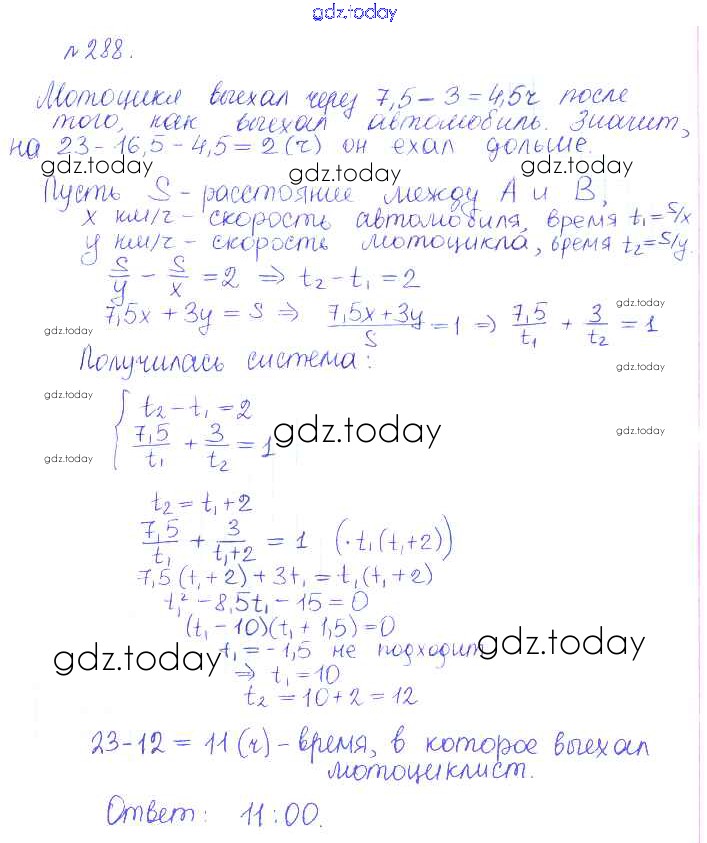 gdz.today
№ 288.
Мотоцикл выехал через 7,5 – 3 = 4,5 ч после
того, как выехал автомобиль. Значит,
на 23 – 16,5 – 4,5 = 2 (ч) он ехал дольше.
gdz.today gdz.today
Пусть S – расстояние между А и В,
x км/ч – скорость автомобиля, время t₁ = S/x
y км/ч – скорость мотоцикла, время t₂ = S/y.
S/y – S/x = 2 ⇒ t₂ – t₁ = 2
gdz.today
7,5x + 3y = S ⇒ (7,5x + 3y)/S = 1 ⇒ 7,5/t₁ + 3/t₂ = 1
gdz.today
Получилась система:
gdz.today
gdz.today
{ t₂ – t₁ = 2
7,5/t₁ + 3/t₂ = 1
gdz.today gdz.today
gdz.today
t₂ = t₁ + 2
7,5/t₁ + 3/(t₁+2) = 1 (· t₁(t₁+2))
7,5(t₁+2) + 3t₁ = t₁(t₁+2)
t₁² – 8,5t₁ – 15 = 0
(t₁ – 10)(t₁ + 1,5) = 0
t₁ = – 1,5 не подходит
gdz.today gdz.today
⇒ t₁ = 10
t₂ = 10 + 2 = 12
23 – 12 = 11 (ч) – время, в которое выехал
мотоциклист.
Ответ: 11:00.